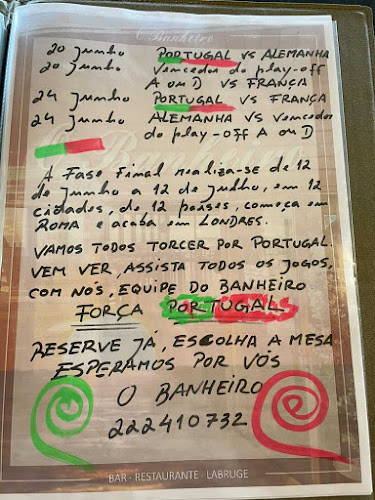 O Banheiro
20 Junho PORTUGAL VS ALEMANHA
20 Junho Vencedor do play-off
A ou D VS FRANÇA
24 Junho PORTUGAL VS FRANÇA
24 Junho ALEMANHA VS Vencedor
do play-off A ou D
O Banheiro
A Fase Final realiza-se de 12
de Junho a 12 de Julho, em 12
cidades, de 12 países, começa em
ROMA e acaba em LONDRES.
VAMOS TODOS TORCER POR PORTUGAL.
VEM VER, ASSISTA TODOS OS JOGOS,
COM NÓS, EQUIPE DO BANHEIRO
FORÇA PORTUGAL
RESERVE JÁ, ESCOLHA A MESA
ESPERAMOS POR VÓS
O BANHEIRO
222410732
BAR · RESTAURANTE · LABRUGE